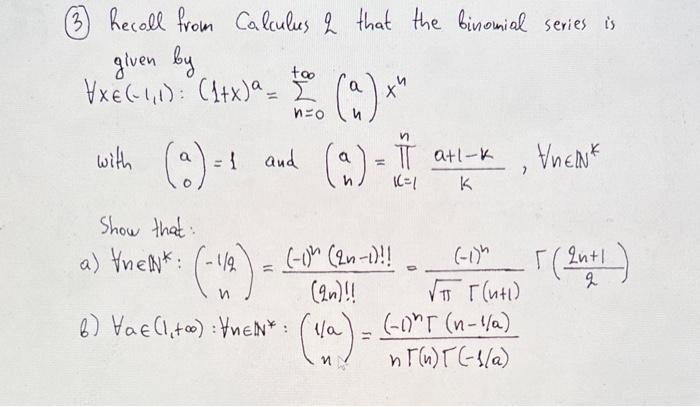 ③ Recall from Calculus 2 that the binomial series is
given by
∀x∈(-1,1): (1+x)^a = ∑_{n=0}^{+∞} (a choose n) x^n
with (a choose 0) = 1 and (a choose n) = ∏_{k=1}^{n} (a+1-k)/k , ∀n∈ℕ*
Show that:
a) ∀n∈ℕ*: (-1/2 choose n) = ((-1)^n (2n-1)!!)/((2n)!!) = ((-1)^n)/(√π Γ(n+1)) Γ((2n+1)/2)
b) ∀a∈(1,+∞): ∀n∈ℕ*: (1/a choose n) = ((-1)^n Γ(n-1/a))/(n Γ(n) Γ(-1/a))